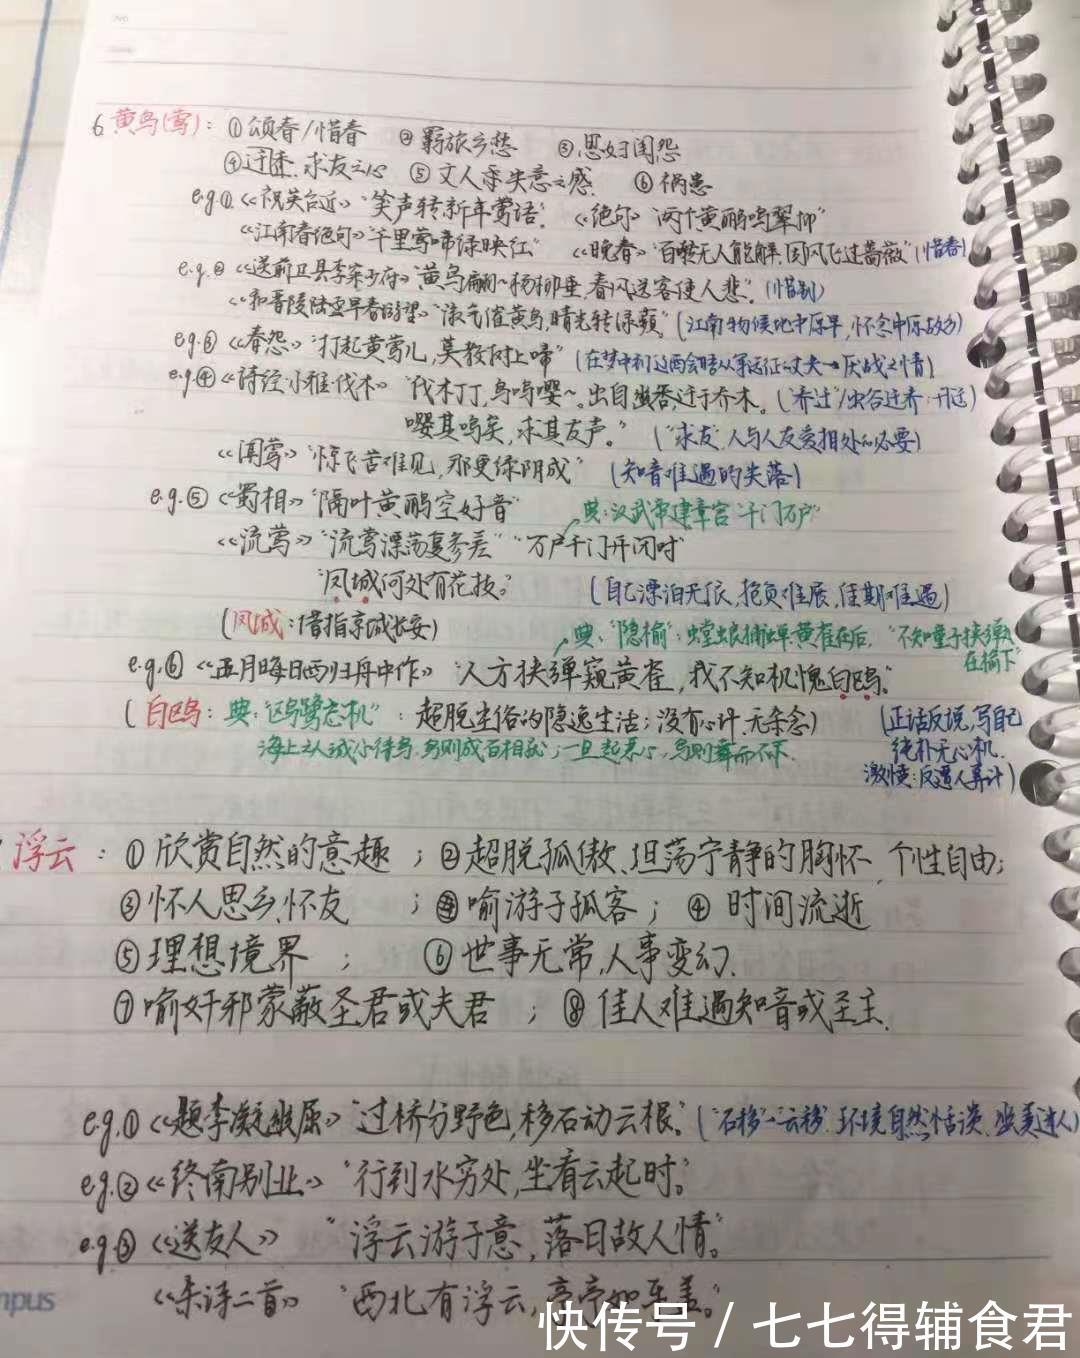 6 黄鸟(莺)：①颂春/惜春 ②羁旅乡愁 ③思妇闺怨
④迁乔.求友之心 ⑤文人亲失意之感. ⑥祸患
e.g.① “笑声转新年莺语”. 《绝句》“两个黄鹂鸣翠柳”
《江南春绝句》“千里莺啼绿映红” 《晚春》“百啭无人能解,因风飞过蔷薇”(惜春)
e.g.② 《送前卫县李寀少府》“黄鸟翩翩杨柳垂,春风送客使人悲”.(惜别)
《和晋陵陆丞早春游望》“淑气催黄鸟,晴光转绿蘋”(江南物候比中原早,怀念中原故乡)
e.g.③《春怨》“打起黄莺儿,莫教树上啼”(在梦中到辽西会晤从军远征的丈夫→厌战之情)
e.g.④《诗经·小雅·伐木》“伐木丁丁,鸟鸣嘤~。出自幽谷,迁于乔木。(“乔迁”/出谷迁乔:升迁)
嘤其鸣矣,求其友声。” (“求友”.人与人友爱相处的必要)
《闻莺》“惊飞苦难见,那更绿阴成” (知音难遇的失落)
e.g.⑤《蜀相》“隔叶黄鹂空好音” 典:汉武帝建章宫“千门万户”
《流莺》“流莺漂荡复参差” “万户千门开闭时”
“凤城何处有花枝。” (自己漂泊无依,抱负难展,佳期难遇)
(凤城:借指京城长安) 典:“隐榆”:螳螂捕蝉黄雀在后,“不知童子挟弹在榆下”
e.g.⑥《五月晦日西归舟中作》“人方挟弹窥黄雀,我不知机愧白鸥。”
(白鸥:典:“鸥鹭忘机”:超脱尘俗的隐逸生活;没有心计.无杂念) (正话反说,写自己
海上之人诚心待鸟,鸟则成百相随;一旦起恶心,鸟则舞而不下. 纯朴无心机.
激愤:反遭人算计)
浮云：①欣赏自然的意趣；②超脱孤傲、坦荡宁静的胸怀、个性自由；
③怀人思乡.怀友；④喻游子孤客；④时间流逝
⑤理想境界；⑥世事无常,人事变幻.
⑦喻奸邪蒙蔽圣君或夫君；⑧佳人难遇知音或圣主.
e.g.①《题李凝幽居》“过桥分野色,移石动云根。”(“石移”→“云移”.环境自然恬淡.幽美迷人)
e.g.②《终南别业》“行到水穷处,坐看云起时。”
e.g.③《送友人》“浮云游子意,落日故人情。”
《杂诗二首》“西北有浮云,亭亭如车盖。”
mpus
快传号／七七得辅食君